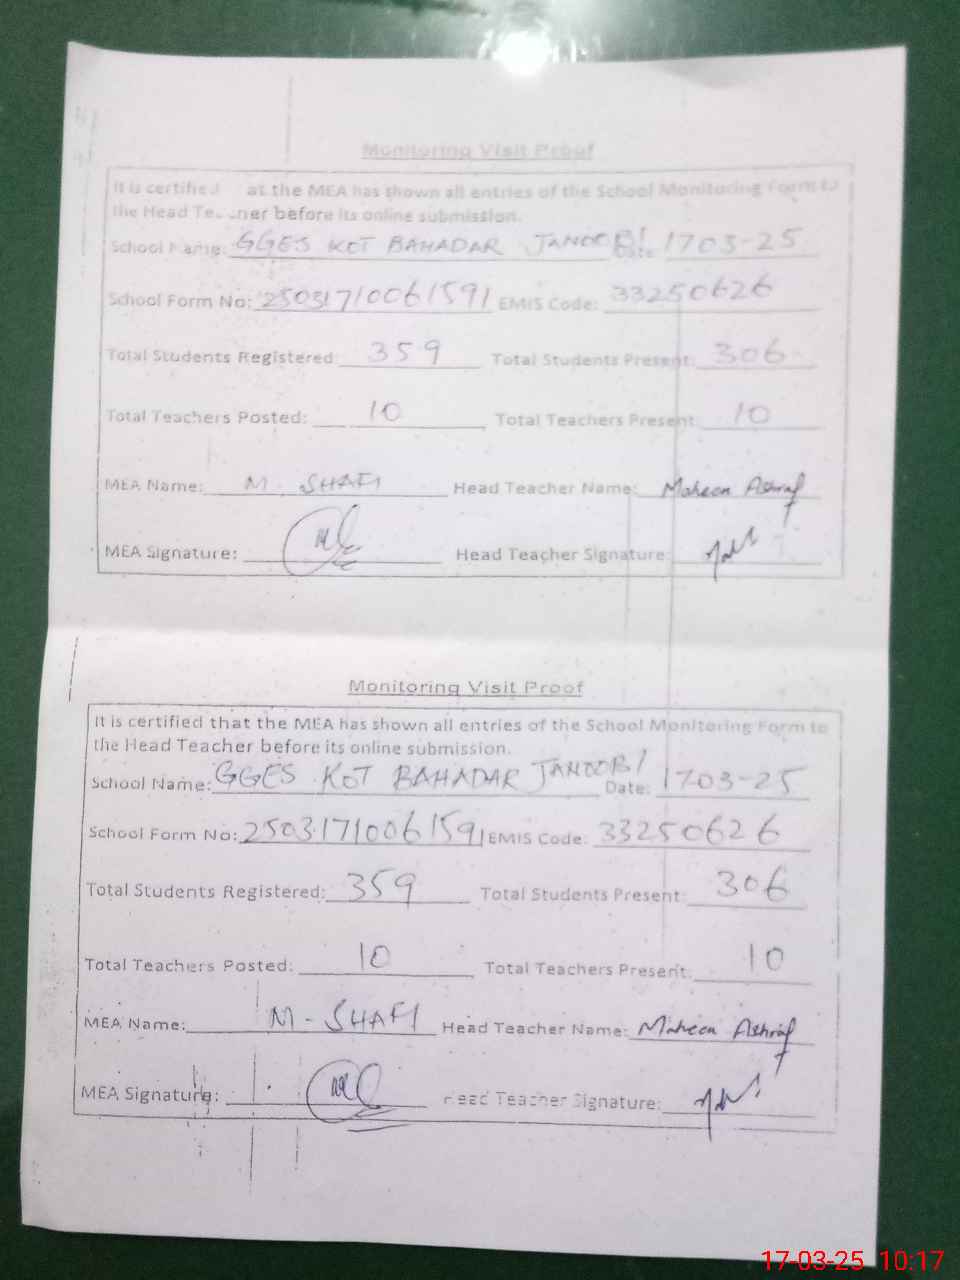 Monitoring Visit Proof
It is certified at the MEA has shown all entries of the School Monitoring Form to
the Head Te ner before its online submission.
School Name: GGES KOT BAHADAR JANOOBI Date: 1703-25
School Form No: 25031710061591 EMIS Code: 33250626
Total Students Registered: 359 Total Students Present: 306
Total Teachers Posted: 10 Total Teachers Present: 10
MEA Name: M. SHAFI Head Teacher Name: Maheen Ashraf
MEA Signature: Head Teacher Signature:
Monitoring Visit Proof
It is certified that the MEA has shown all entries of the School Monitoring Form to
the Head Teacher before its online submission.
School Name: GGES KOT BAHADAR JANOOBI Date: 1703-25
School Form No: 25031710061591 EMIS Code: 33250626
Total Students Registered: 359 Total Students Present: 306
Total Teachers Posted: 10 Total Teachers Present: 10
MEA Name: M - SHAFI Head Teacher Name: Maheen Ashraf
MEA Signature: Head Teacher Signature:
17-03-25 10:17